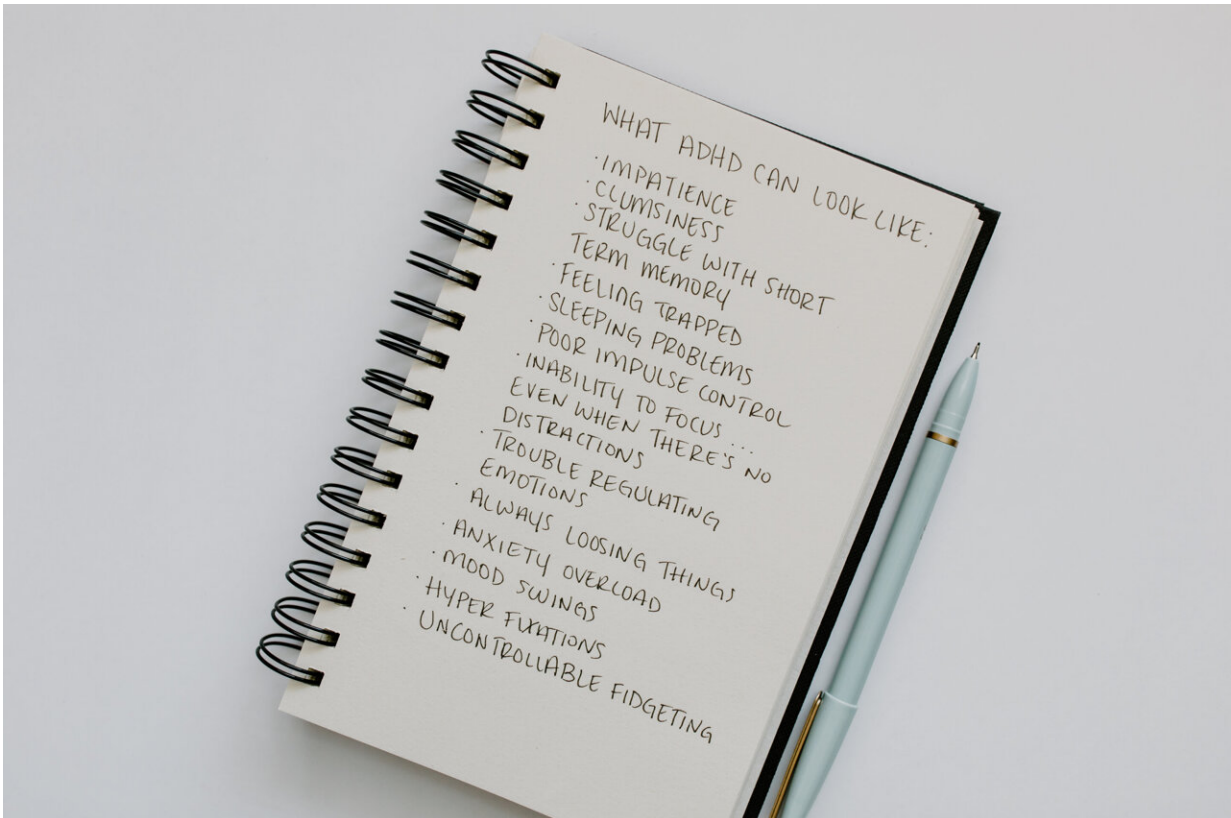 WHAT ADHD CAN LOOK LIKE:
· IMPATIENCE
· CLUMSINESS
· STRUGGLE WITH SHORT
TERM MEMORY
· FEELING TRAPPED
· SLEEPING PROBLEMS
· POOR IMPULSE CONTROL
· INABILITY TO FOCUS...
EVEN WHEN THERE'S NO
DISTRACTIONS
· TROUBLE REGULATING
EMOTIONS
· ALWAYS LOOSING THINGS
· ANXIETY OVERLOAD
· MOOD SWINGS
· HYPER FIXATIONS
· UNCONTROLLABLE FIDGETING